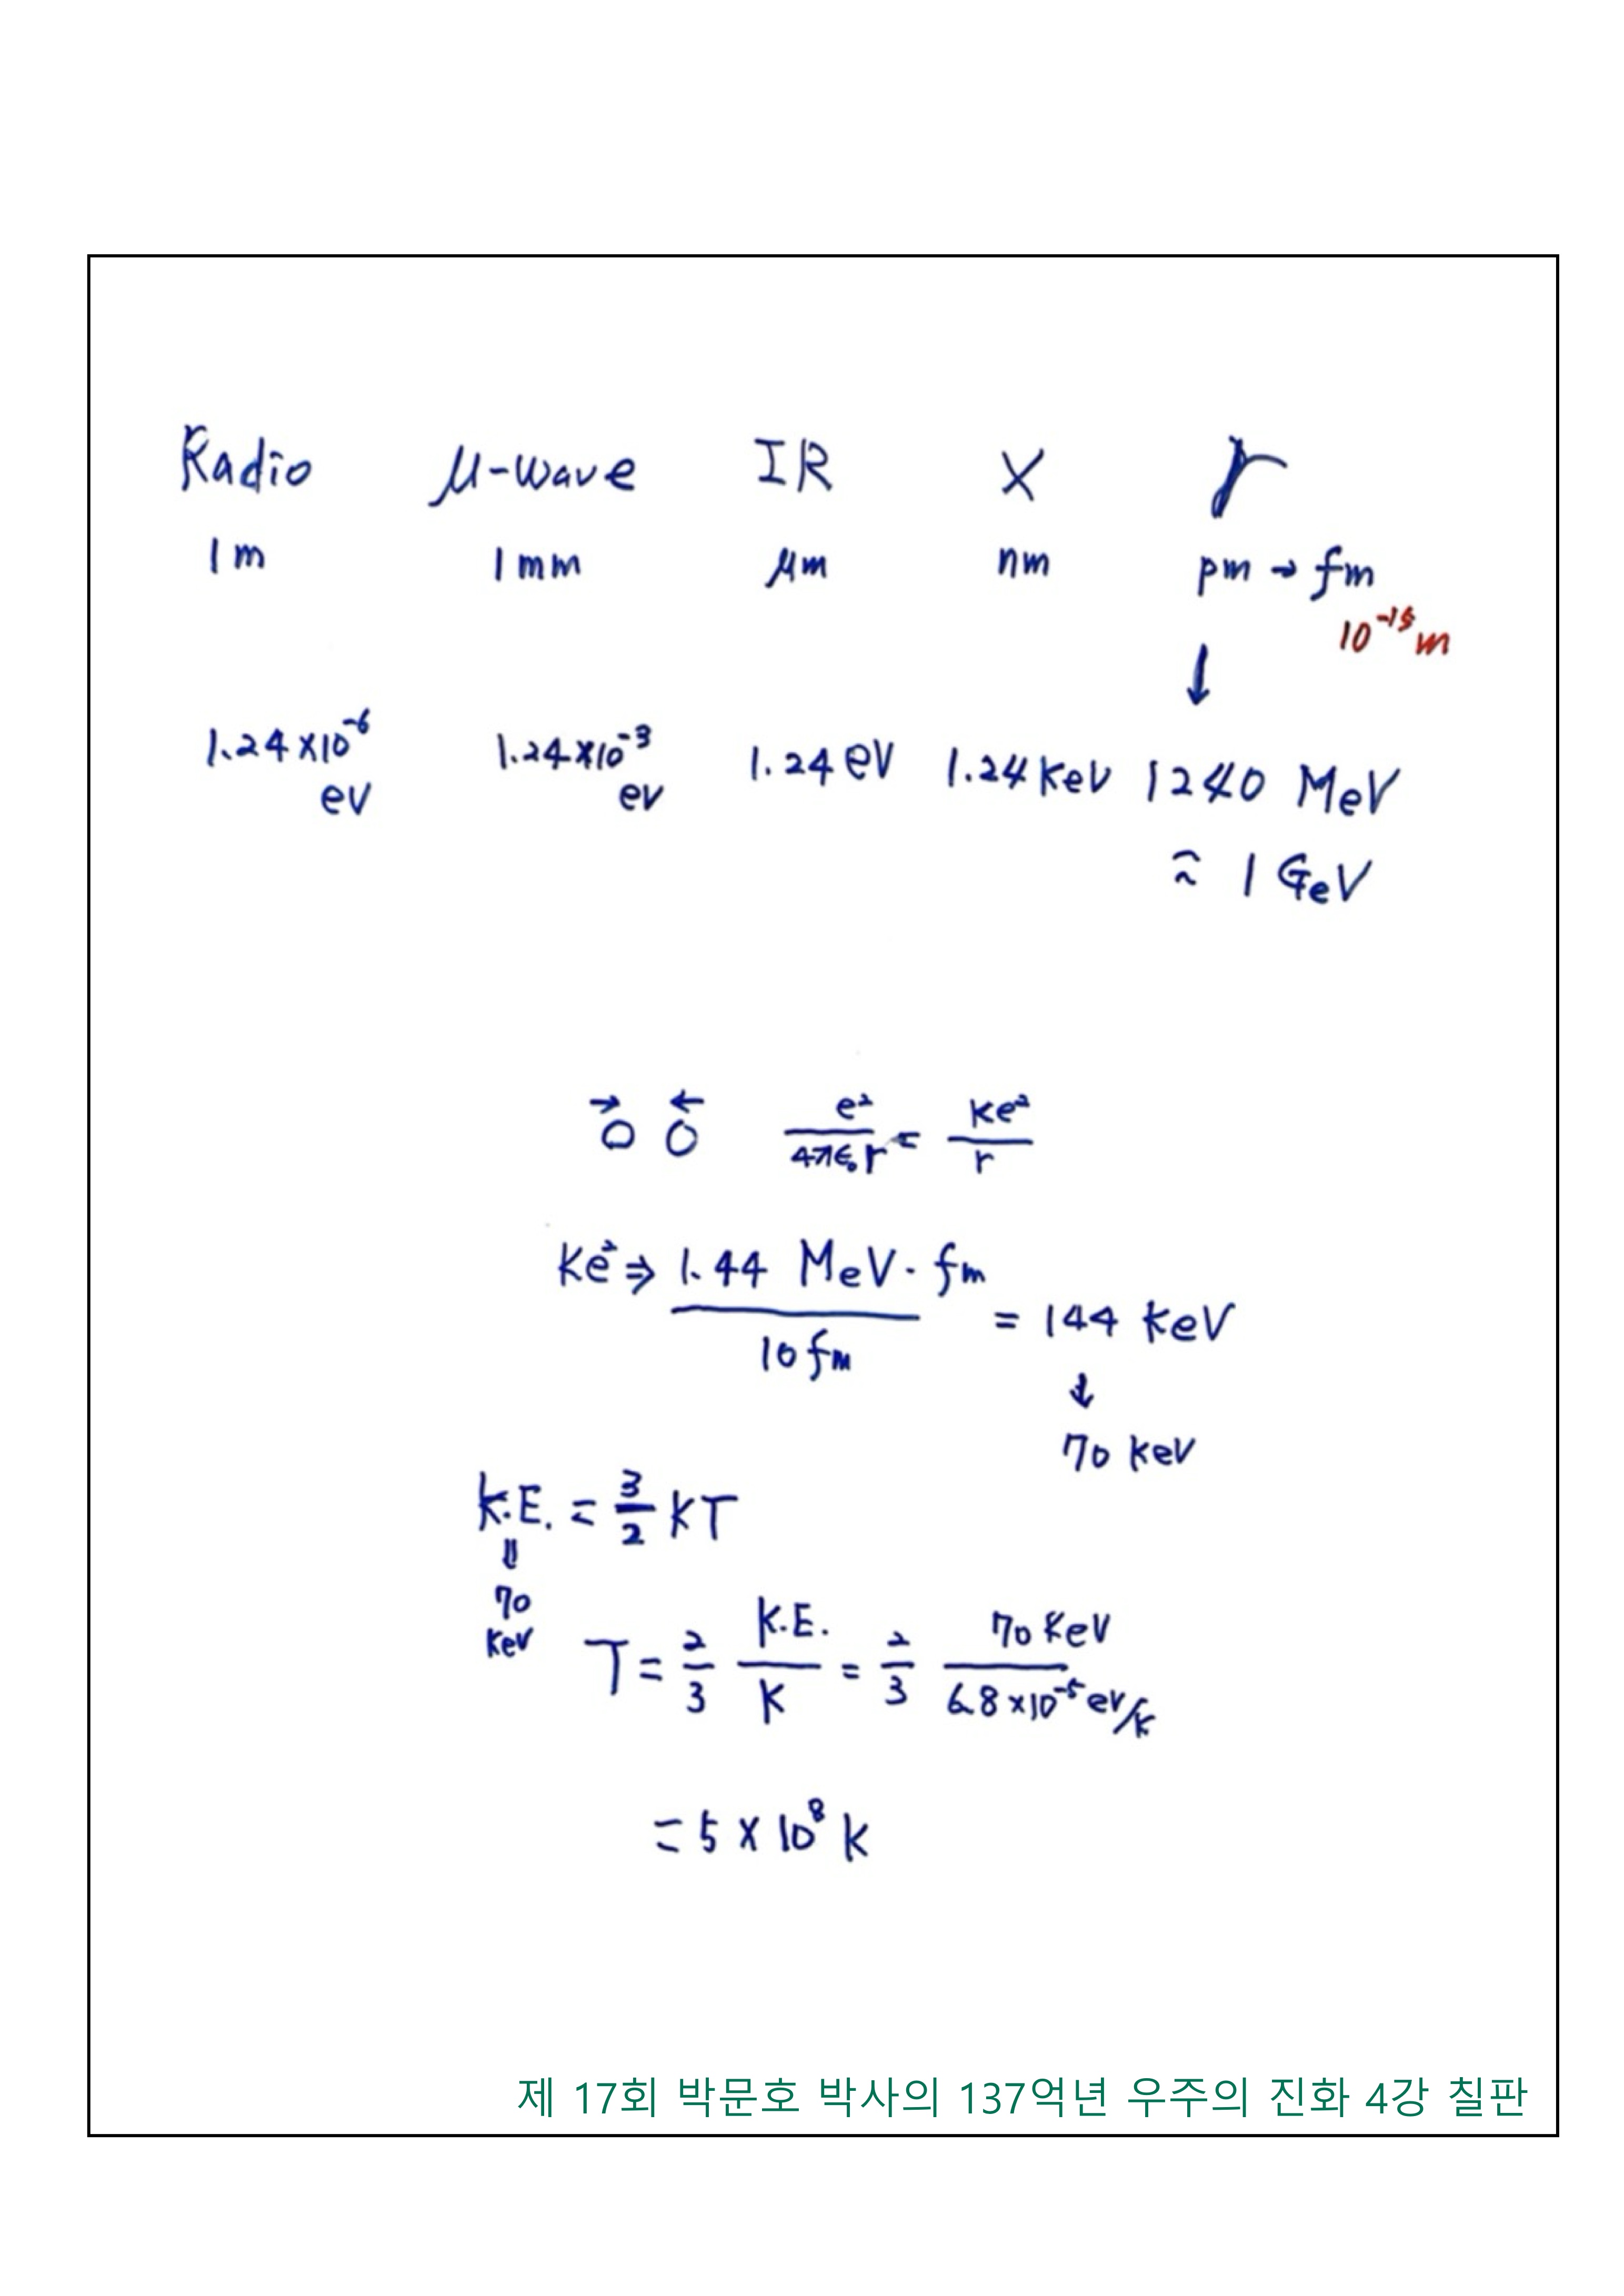 Radio μ-wave IR X γ
1 m 1 mm μm nm pm → fm
10⁻¹⁵ m
↓
1.24×10⁻⁶ eV 1.24×10⁻³ eV 1.24 eV 1.24 keV 1240 MeV
≈ 1 GeV
→ ←
O O e²/4πε₀r = ke²/r
ke² ⇒ 1.44 MeV·fm / 10 fm = 144 keV
↓
70 keV
K.E. = 3/2 KT
=
70 keV
T = 2/3 K.E./K = 2/3 70 keV / 6.8×10⁻⁵ eV/K
= 5 × 10⁸ K
제 17회 박문호 박사의 137억년 우주의 진화 4강 칠판